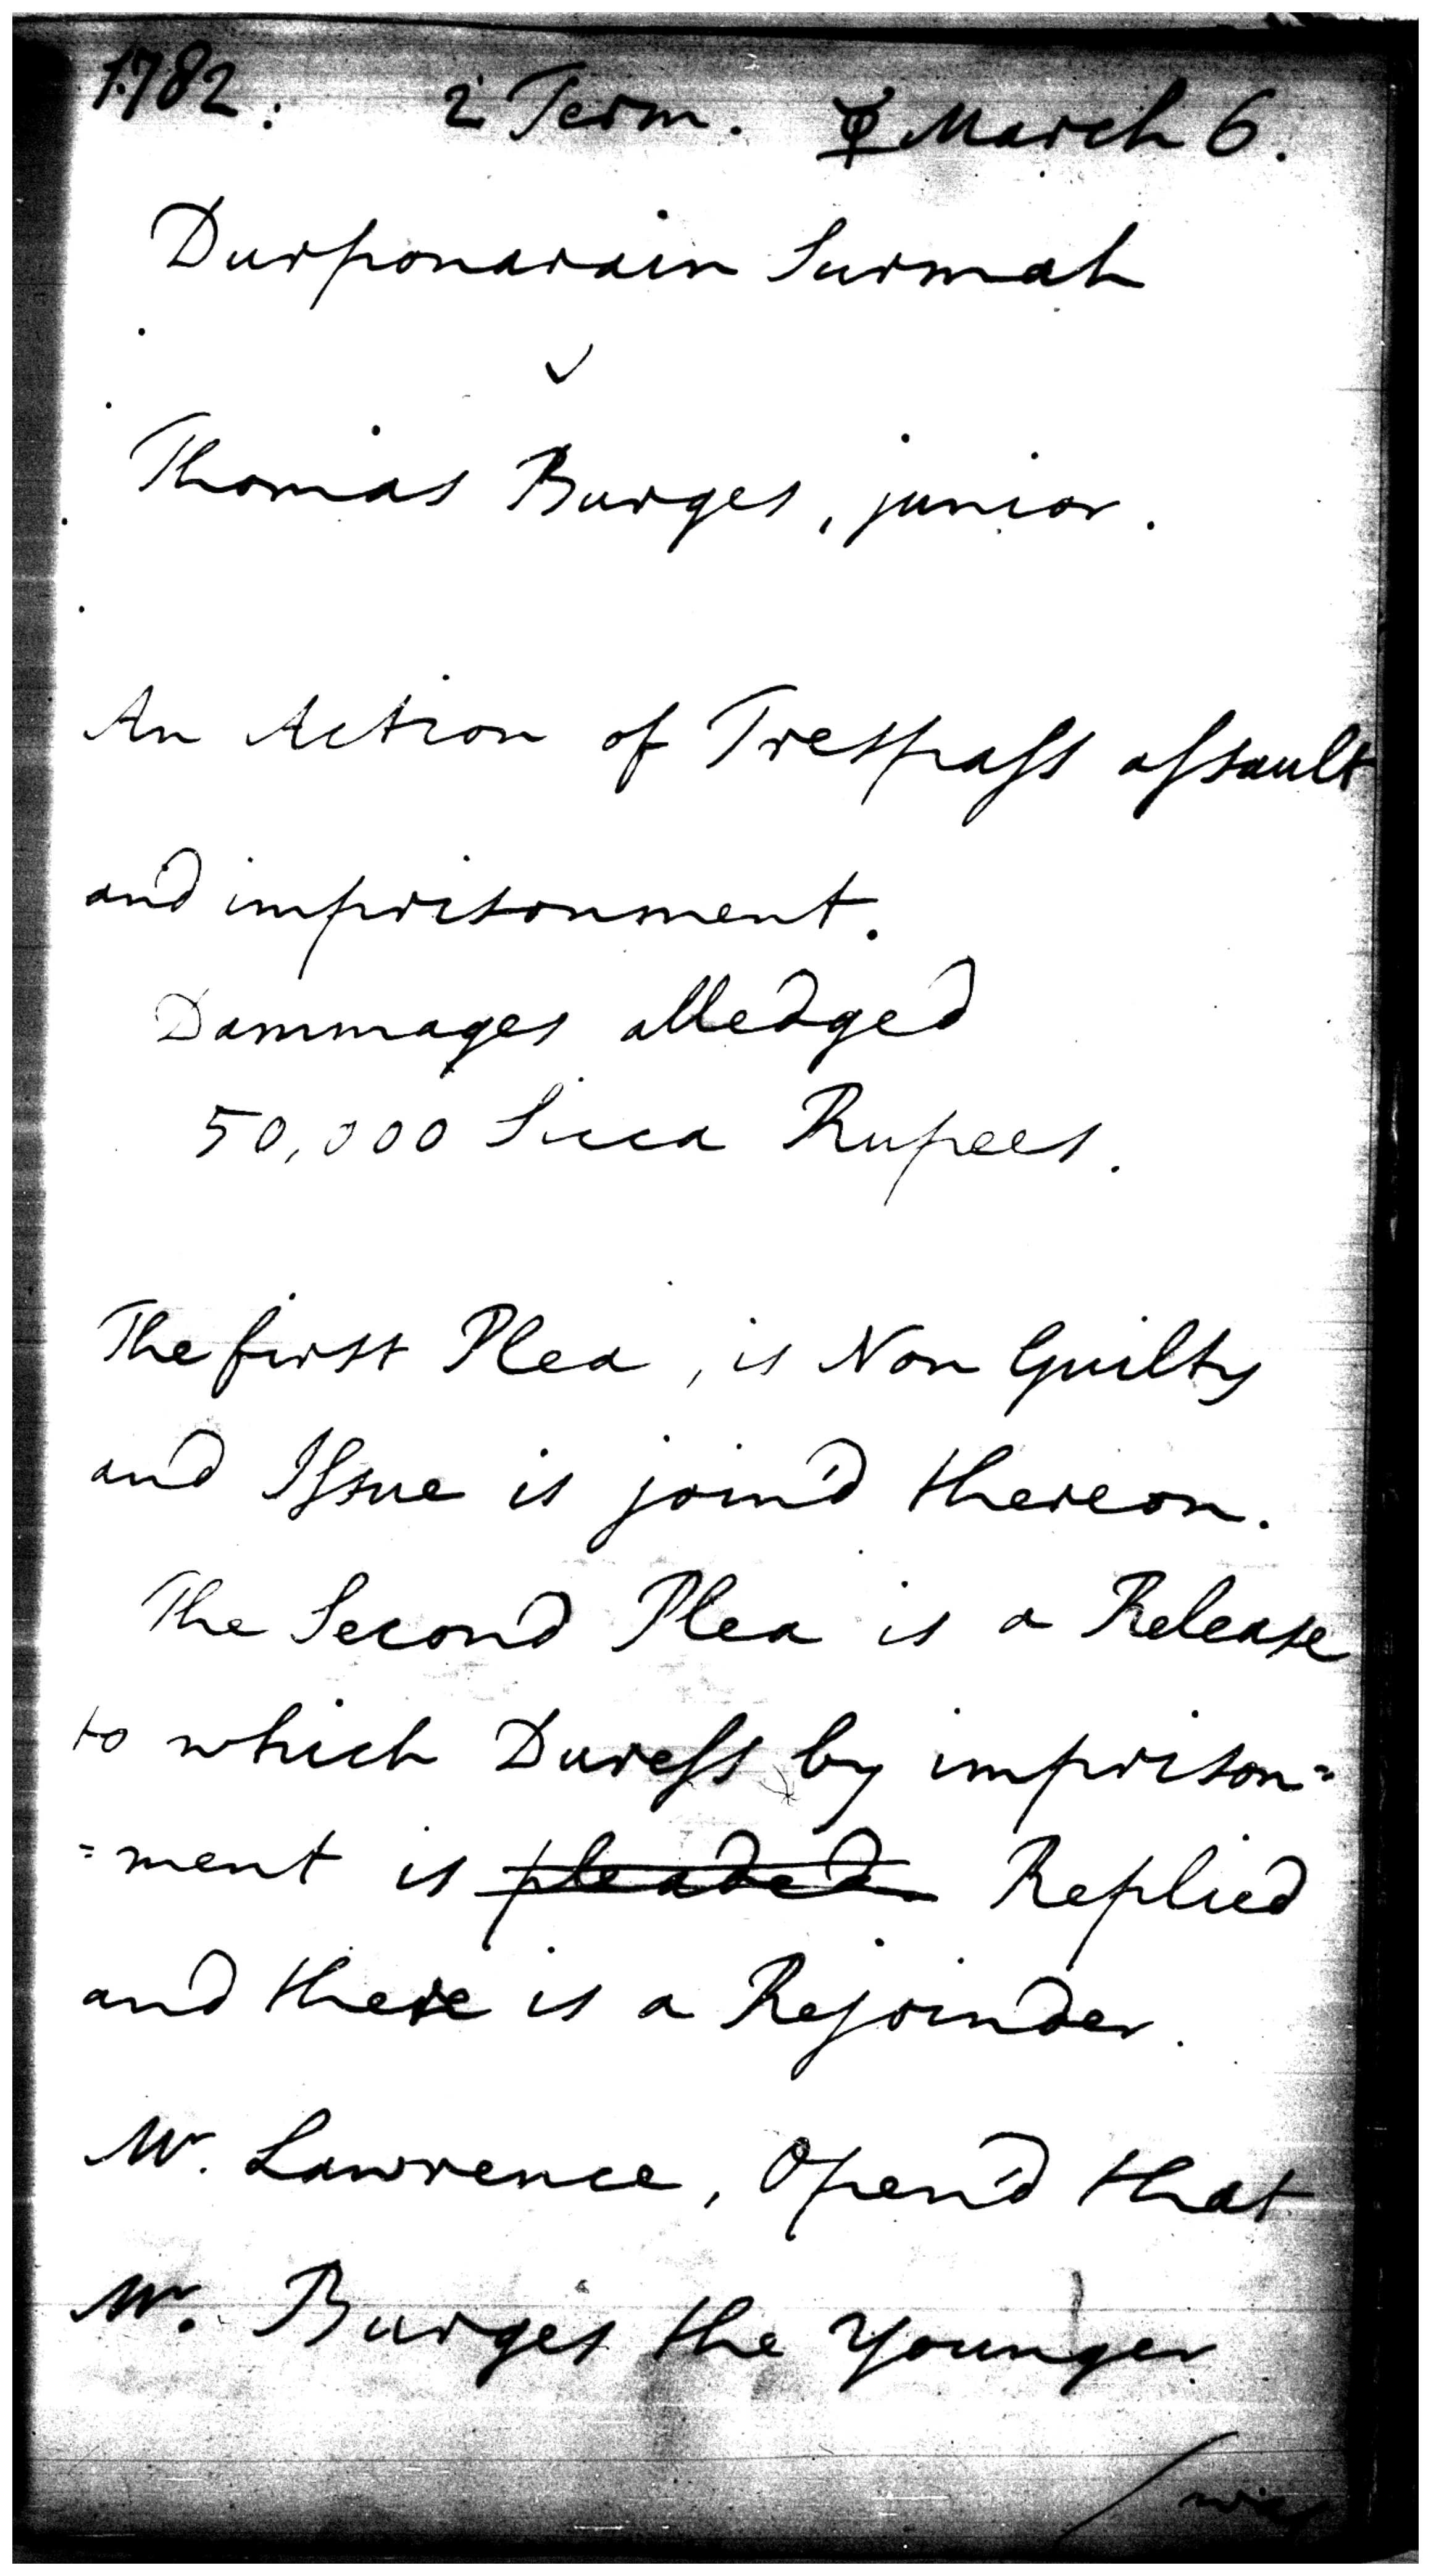 1782. 2 Term. ☿ March 6.
Durponarain Surmah
v
Thomas Burges, junior.
An Action of Trespass assault
and imprisonment.
Dammages alledged
50,000 Sicca Rupees.
The first Plea, is Non Guilty
and Issue is join'd thereon.
The Second Plea is a Release
to which Duress by imprison=
=ment is pleaded Replied
and there is a Rejoinder.
Mr. Lawrence, Open'd that
Mr. Burges the Younger